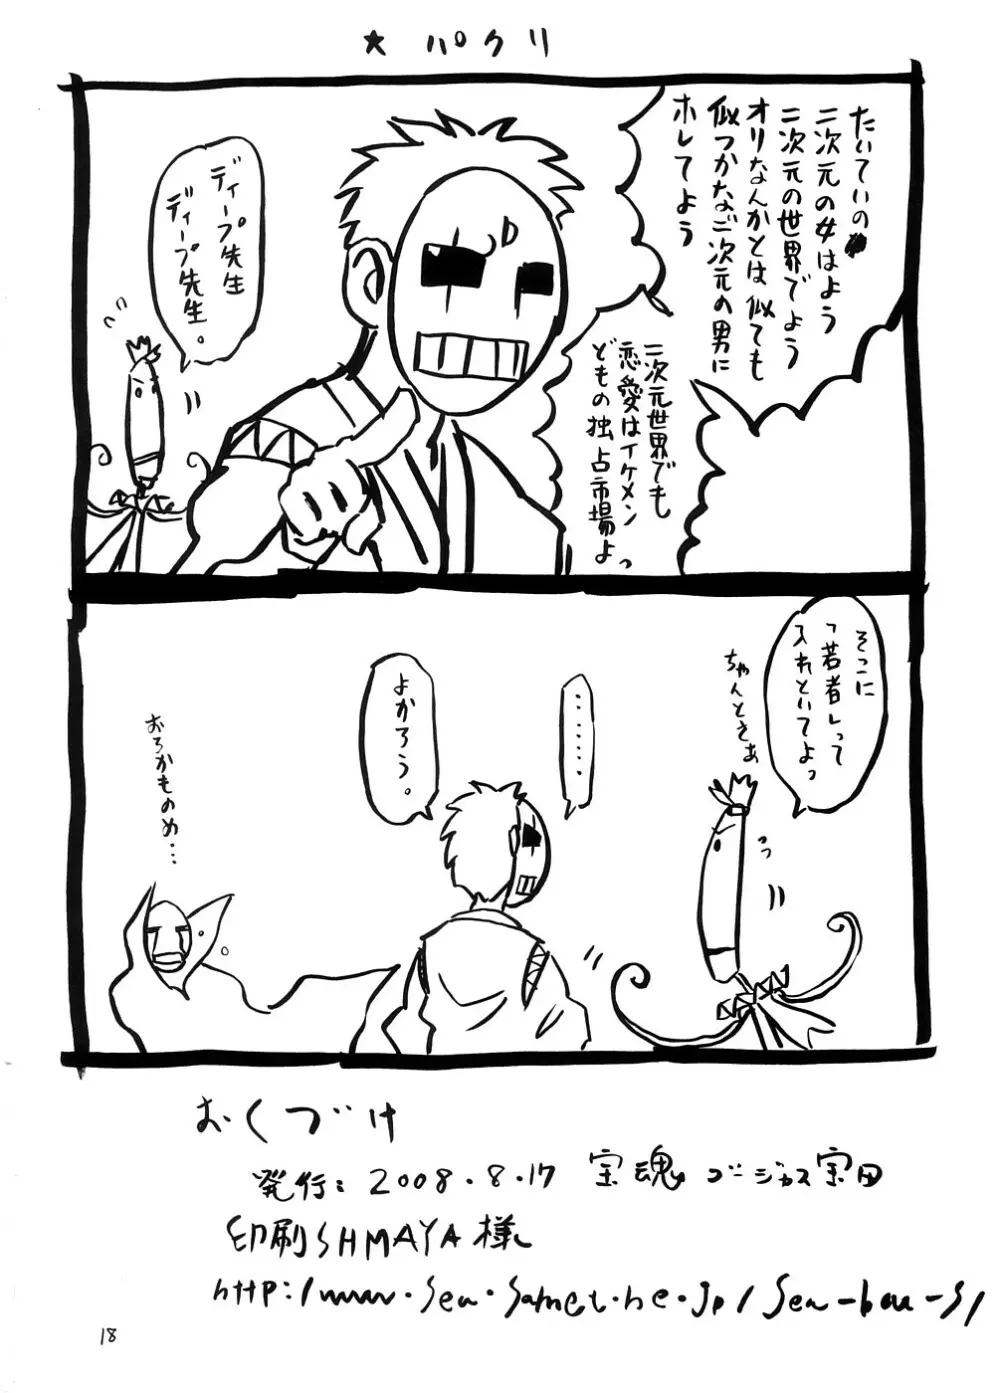 ★パクリ
たいていの
二次元の女はよう
二次元の世界でよう
オリなんかとは似ても
似つかなご次元の男に
ホレてよう
二次元世界でも
恋愛はイケメン
どもの独占市場よっ
ディープ先生
ディープ先生。
そこに
「若者」って
入れといてよっ
ちゃんとさぁ
‥‥‥‥
よかろう。
おろかものめ…
おくづけ
発行：2008.8.17 宝魂 ゴージャス宝田
印刷SHMAYA様
http://www.sea.
18